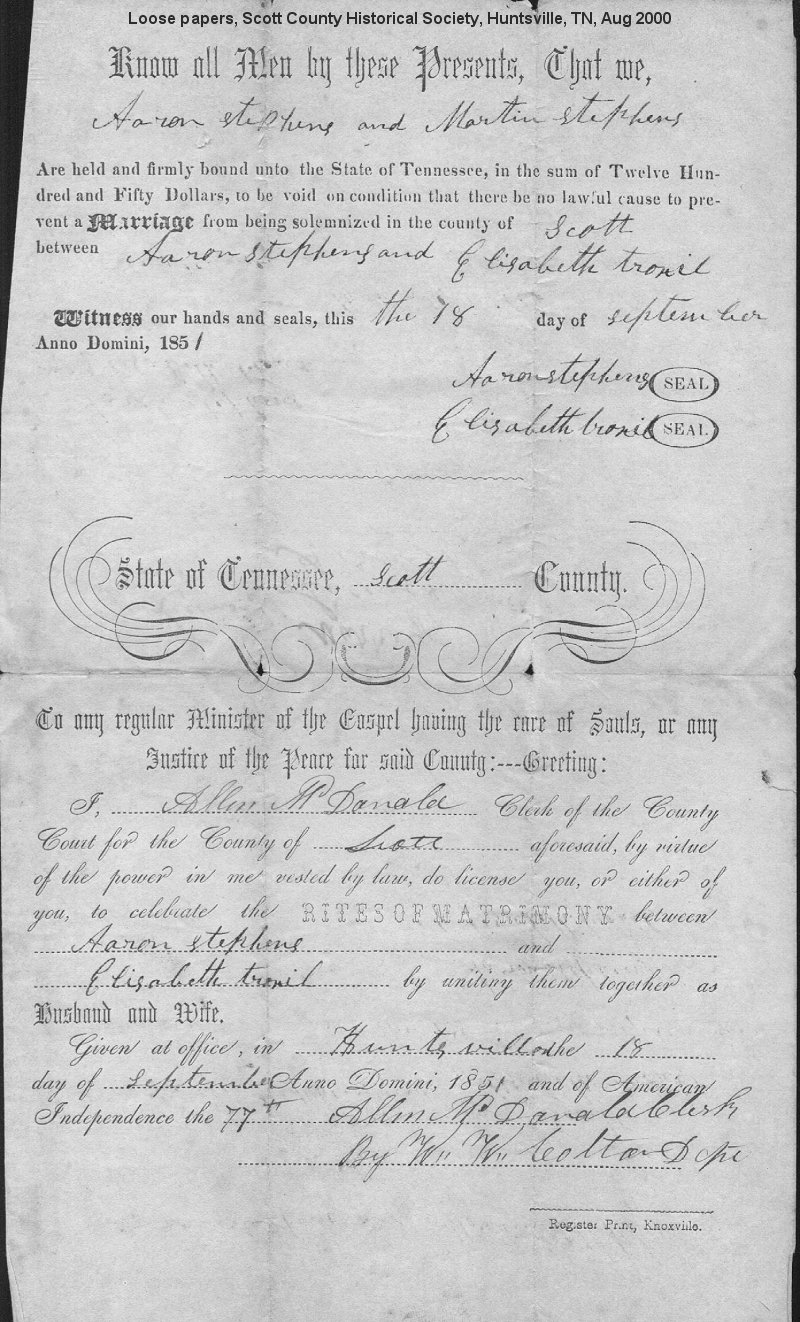 Loose papers, Scott County Historical Society, Huntsville, TN, Aug 2000
Know all Men by these Presents, That we,
Aaron stephens and Martin stephens
Are held and firmly bound unto the State of Tennessee, in the sum of Twelve Hun-
dred and Fifty Dollars, to be void on condition that there be no lawful cause to pre-
vent a Marriage from being solemnized in the county of Scott
between Aaron stephens and Elisabeth troxil
Witness our hands and seals, this the 18 day of september
Anno Domini, 1851
Aaron stephens SEAL
Elisabeth troxil SEAL
State of Tennessee, Scott County.
To any regular Minister of the Gospel having the care of Souls, or any
Justice of the Peace for said County:---Greeting:
I, Allen McDonald Clerk of the County
Court for the County of Scott aforesaid, by virtue
of the power in me vested by law, do license you, or either of
you, to celebrate the RITES OF MATRIMONY between
Aaron stephens and
Elisabeth troxil by uniting them together as
Husband and Wife.
Given at office, in Huntsville the 18
day of september Anno Domini, 1851 and of American
Independence the 77th Allen McDonald Clerk
By Wm
Register Print, Knoxville.